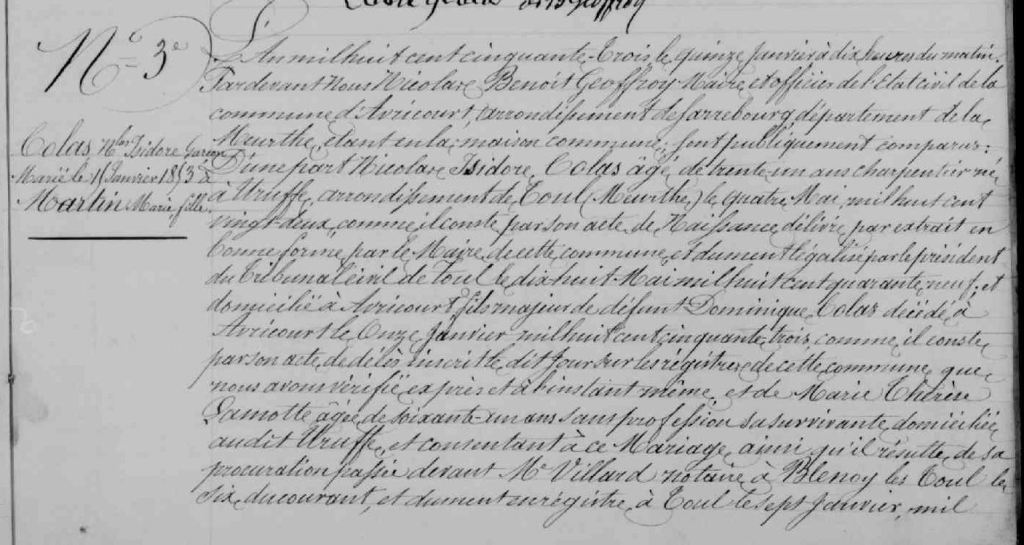 N° 3e
Colas Nlas Isidore Garçon
Marié le 15 Janvier 1853 à
Martin Marie fille
L'An mil huit cent cinquante-trois, le quinze Janvier à dix heures du matin
Pardevant Nous Nicolas Benoit Geoffroy Maire et officier de l'Etat civil de la
commune d'Avricourt, arrondissement de Sarrebourg département de la
Meurthe, étant en la maison commune; sont publiquement comparus:
D'une part Nicolas Isidore Colas âgé de trente un ans charpentier né
à Uruffe, arrondissement de Toul (Meurthe) le quatre Mai mil huit cent
vingt-deux, comme il conste par son acte de Naissance délivré par extrait en
bonne forme par le Maire de cette commune, et dument légalisé par le président
du Tribunal civil de Toul le dix huit Mai mil huit cent quarante neuf, et
domicilié à Avricourt fils majeur de défunt Dominique Colas décédé à
Avricourt le Onze Janvier mil huit cent cinquante trois, comme il conste
par son acte de décès inscrit le dit jour sur les régistres de cette commune que
nous avons vérifié exprès et à l'instant même, et de Marie Thérèse
Lamotte âgée de soixante un ans sans profession sa survivante domiciliée
audit Uruffe, et consentant à ce Mariage ainsi qu'il résulte de sa
procuration passée devant Me Villard notaire à Blenoy les Toul le
six du courant, et dument enrégistré à Toul le sept Janvier, mil